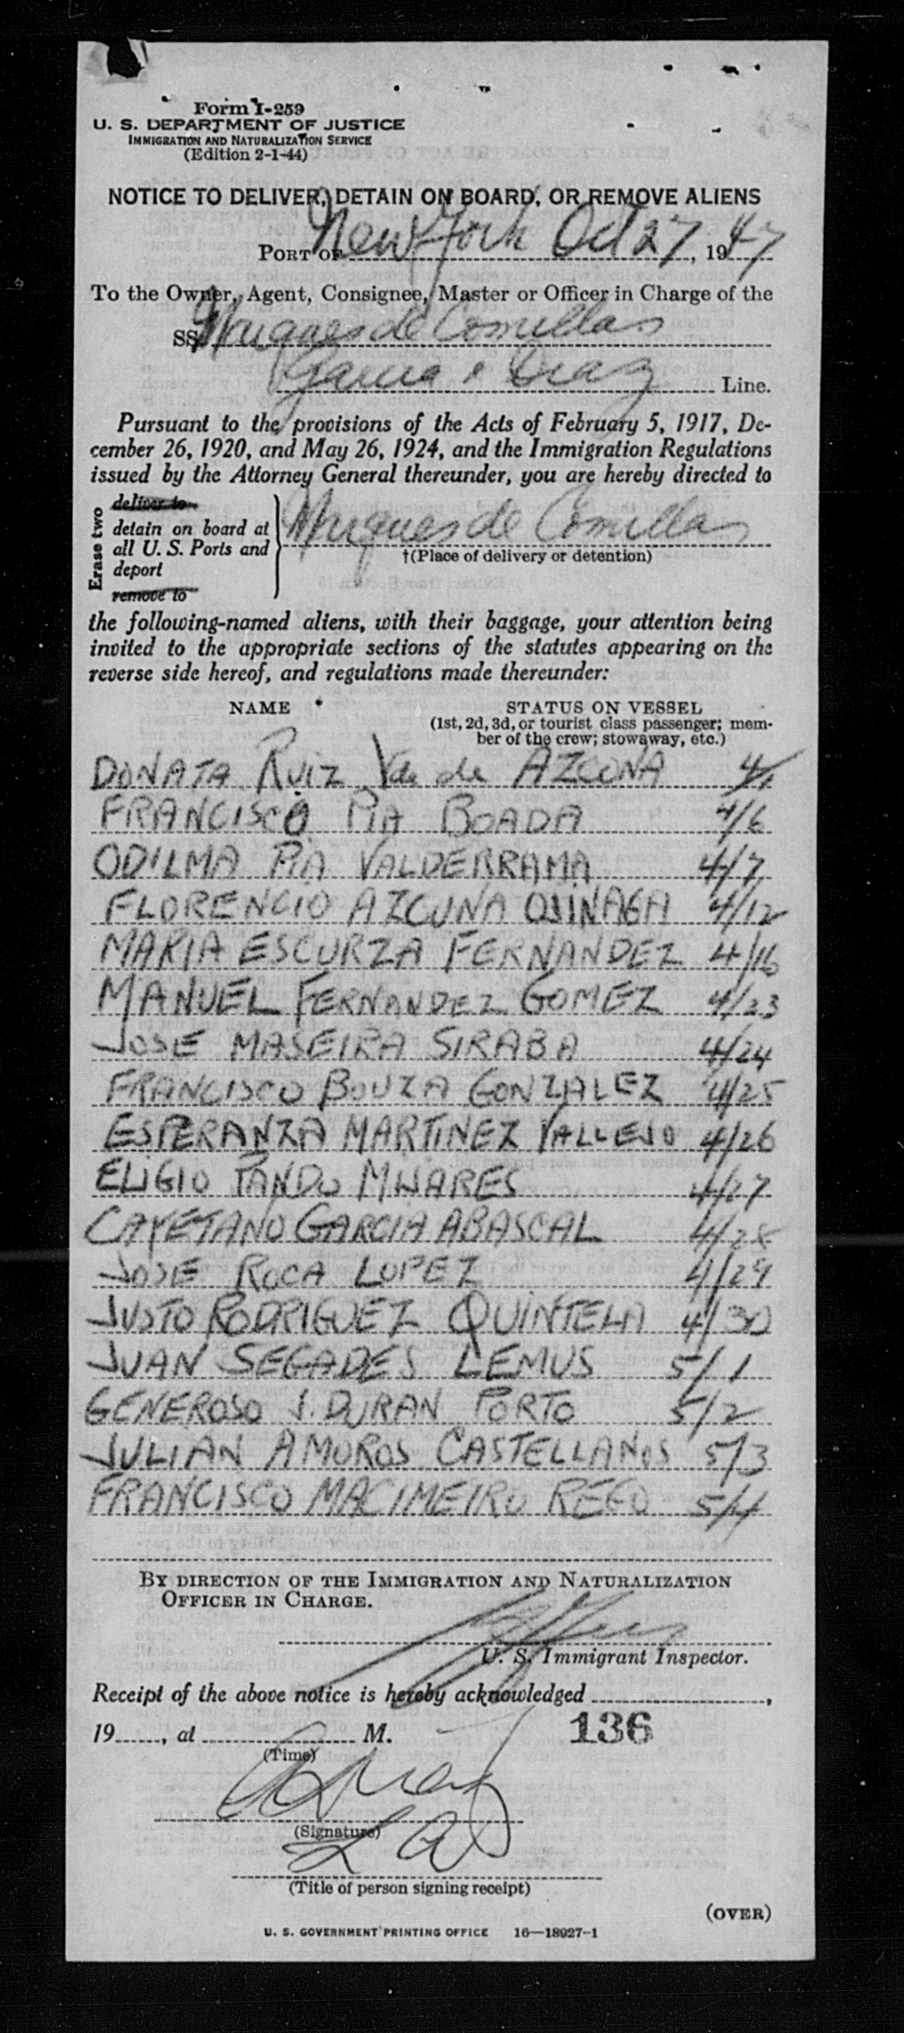 Form I-259
U. S. DEPARTMENT OF JUSTICE
IMMIGRATION AND NATURALIZATION SERVICE
(Edition 2-1-44)
NOTICE TO DELIVER, DETAIN ON BOARD, OR REMOVE ALIENS
PORT OF New York Oct 27, 1947
To the Owner, Agent, Consignee, Master or Officer in Charge of the
SS Marques de Comillas
Garcia & Diaz Line.
Pursuant to the provisions of the Acts of February 5, 1917, De-
cember 26, 1920, and May 26, 1924, and the Immigration Regulations
issued by the Attorney General thereunder, you are hereby directed to
Erase two
deliver to
detain on board at
all U. S. Ports and
deport
remove to
Marques de Comillas
†(Place of delivery or detention)
the following-named aliens, with their baggage, your attention being
invited to the appropriate sections of the statutes appearing on the
reverse side hereof, and regulations made thereunder:
NAME STATUS ON VESSEL
(1st, 2d, 3d, or tourist class passenger; mem-
ber of the crew; stowaway, etc.)
DONATA RUIZ Vda de AZCONA
FRANCISCO PIA BOADA 4/6
ODILMA PIA VALDERRAMA 4/7
FLORENCIO AZCUNA 4/12
MARIA ESCURZA FERNANDEZ 4/16
MANUEL FERNANDEZ GOMEZ 4/23
JOSE MASEIRA SIRABA 4/24
FRANCISCO BOUZA GONZALEZ 4/25
ESPERANZA MARTINEZ VALLEJO 4/26
ELIGIO TANDO MIJARES 4/27
CAYETANO GARCIA ABASCAL 4/28
JOSE ROCA LOPEZ 4/29
JUSTO RODRIGUEZ QUINTELA 4/30
JUAN SEGADES LEMUS 5/1
GENEROSO J. DURAN PORTO 5/2
JULIAN AMOROS CASTELLANOS 5/3
FRANCISCO MACIMEIRO REGO 5/4
BY DIRECTION OF THE IMMIGRATION AND NATURALIZATION
OFFICER IN CHARGE.
U. S. Immigrant Inspector.
Receipt of the above notice is hereby acknowledged ,
19 , at M. 136
(Time)
(Signature)
(Title of person signing receipt)
(OVER)
U. S. GOVERNMENT PRINTING OFFICE 16—18927-1